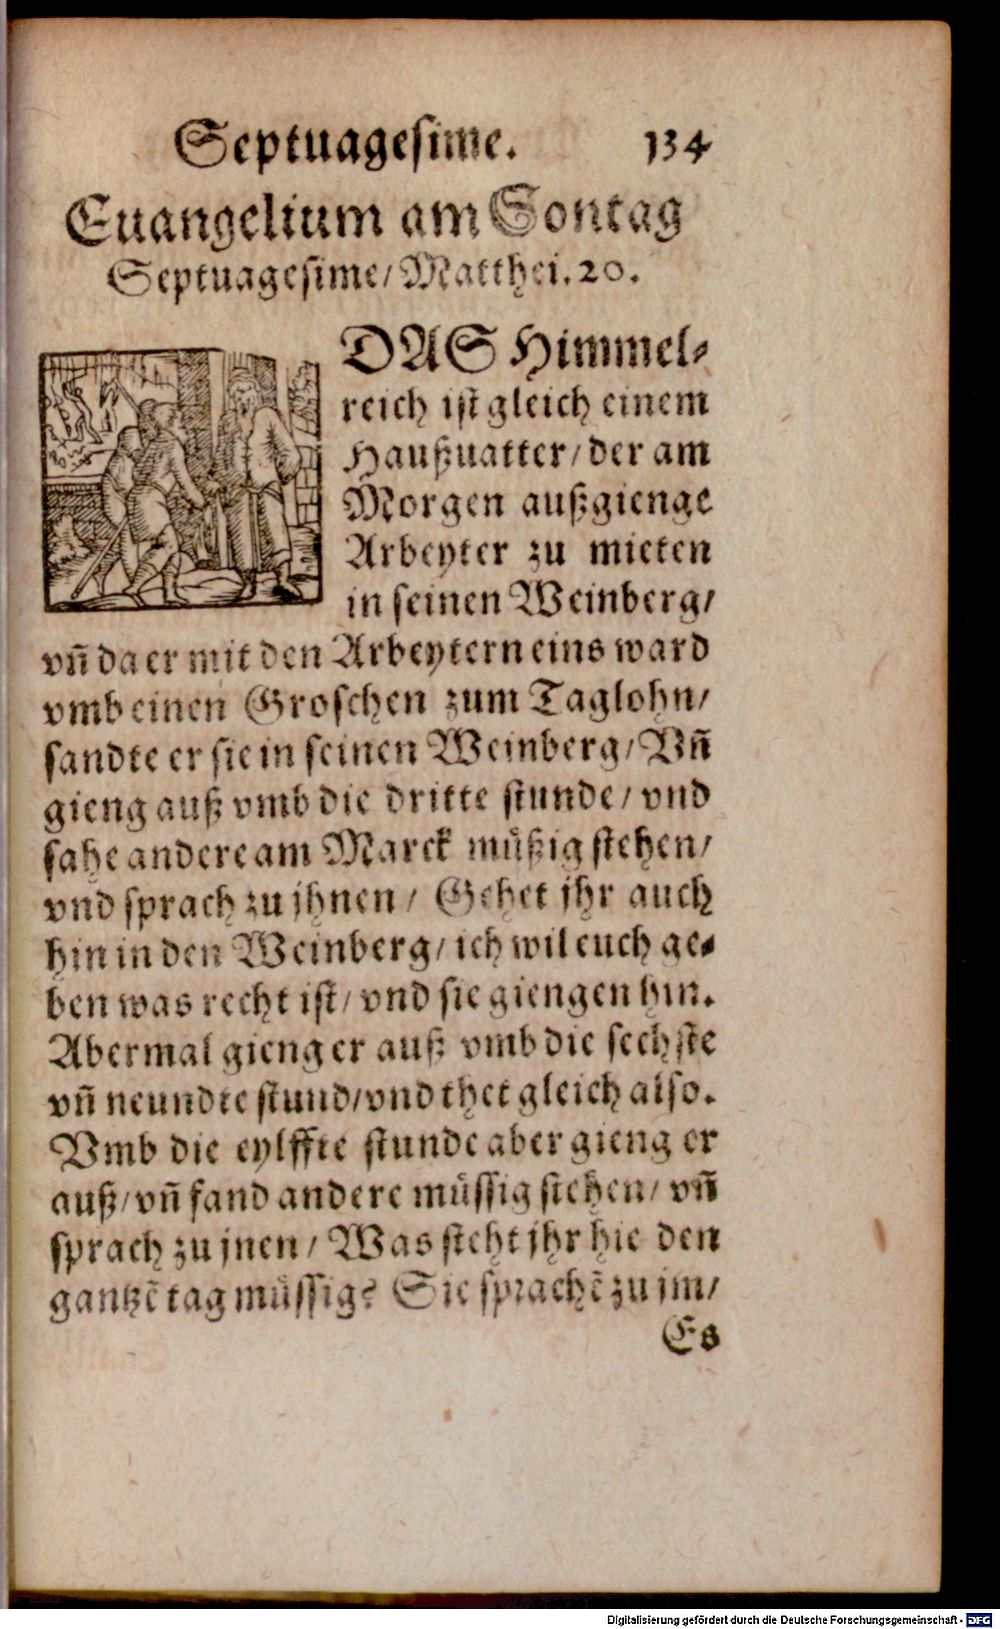 Septuagesime. 134
Euangelium am Sontag
Septuagesime/ Matthei. 20.
DAS Himmel-
reich ist gleich einem
Haußuatter/ der am
Morgen außgienge
Arbeyter zu mieten
in seinen Weinberg/
vñ da er mit den Arbeytern eins ward
vmb einen Groschen zum Taglohn/
sandte er sie in seinen Weinberg/ Vñ
gieng auß vmb die dritte stunde/ vnd
sahe andere am Marck müßig stehen/
vnd sprach zu jhnen/ Gehet jhr auch
hin in den Weinberg/ ich wil euch ge-
ben was recht ist/ vnd sie giengen hin.
Abermal gieng er auß vmb die sechste
vñ neundte stund/ vnd thet gleich also.
Vmb die eylffte stunde aber gieng er
auß/ vñ fand andere müssig stehen/ vñ
sprach zu jnen/ Was steht jhr hie den
gantzẽ tag müssig? Sie sprachẽ zu jm/
Es
Digitalisierung gefördert durch die Deutsche Forschungsgemeinschaft - DFG